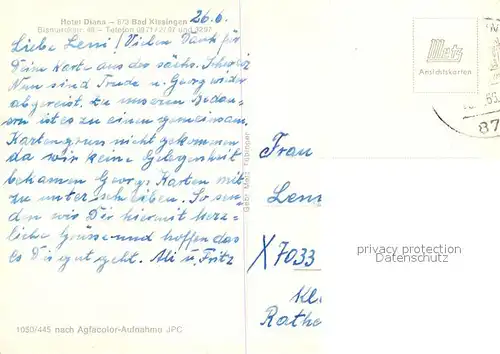 Hotel Diana – 873 Bad Kissingen
Bismarckstr. 40 – Telefon 0971/2291 und 3291
26.6.
Liebe Leni! Vielen Dank für
Deine Karte aus der sächs. Schweiz
Nun sind Trude u. Georg wieder
abgereist, zu unserem Bedau-
ern ist es zu einem gemeinsam.
Kartengruss nicht gekommen
da wir keine Gelegenheit
bekamen Georgs Karten mit
zu unterschreiben. So sen-
den wir Dir hiermit herz-
liche Grüsse und hoffen das
es Dir gut geht. Ali u. Fritz
1050/445 nach Agfacolor-Aufnahme JPC
Gebr. Metz Tübingen
Metz
Ansichtskarten
87
Frau
Leni
X 7033
Rathe
privacy protection
Datenschutz